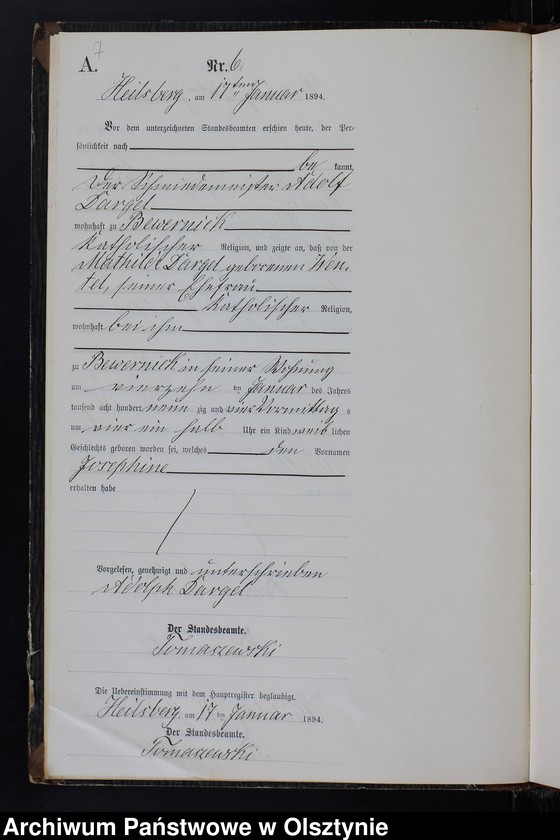 7
A.
Nr. 6.
Heilsberg, am 17ten Januar 1894.
Vor dem unterzeichneten Standesbeamten erschien heute, der Per-
sönlichkeit nach
be kannt,
der Schmiedemeister Adolf
Dargel
wohnhaft zu Bewernick
katholischer Religion, und zeigte an, daß von der
Mathilde Dargel geborenen Hen-
tel, seiner Ehefrau
katholischer Religion,
wohnhaft bei ihm
zu Bewernick in seiner Wohnung
am vierzehn ten Januar des Jahres
tausend acht hundert neun zig und vier Vormittag s
um vier ein halb Uhr ein Kind weib lichen
Geschlechts geboren worden sei, welches den Vornamen
Josephine
erhalten habe
Vorgelesen, genehmigt und unterschrieben
Adolph Dargel
Der Standesbeamte.
Tomaszewski
Die Uebereinstimmung mit dem Hauptregister beglaubigt.
Heilsberg, am 17 ten Januar 1894.
Der Standesbeamte.
Tomaszewski
Archiwum Państwowe w Olsztynie